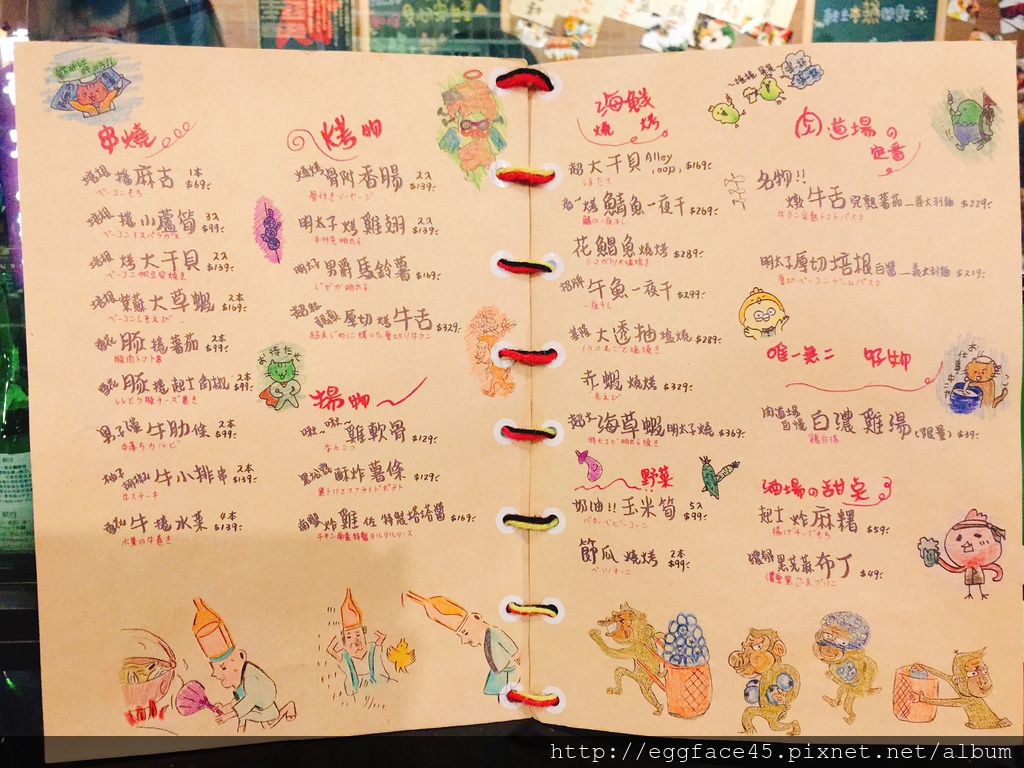 串燒
培根捲麻吉 1本 $69.-
ベーコンもち
培根捲小蘆筍 3入 $99.-
ベーコンアスパラガス
培根烤大干貝 2入 $139.-
ベーコン帆立貝焼き
培根紫蘇大草蝦 2本 $169.-
ベーコンしそえび
豚捲番茄 2本 $99.-
豚肉トマト串
豚捲起士角椒 2本 $99.-
ししとう豚チーズ巻き
男子漢牛肋條 2本 $99.-
中落ちカルビ
柚子胡椒牛小排串 2本 $139.-
牛ステーキ
牛捲水菜 4本 $139.-
水菜の牛巻き
烤物
燒烤骨附香腸 2入 $139.-
骨付きソーセージ
明太子烤雞翅 2入 $139.-
手羽先明太子
明太子男爵馬鈴薯 $169.-
じゃが明太子
超級厚切烤牛舌 $329.-
お待たせ
揚物
啾~啾~雞軟骨 $129.-
なんこつ
黑松露酥炸薯條 $129.-
黒トリュフフライドポテト
南蠻炸雞佐特製塔塔醬 $169.-
チキン南蛮特製タルタルソース
海鮮燒烤
超大干貝 Alley loop $169.-
ほたて
烤鯖魚一夜干 $269.-
鯖の一夜干し
花鯧魚燒烤 $289.-
牛魚一夜干 $299.-
一夜干し
大透抽塩燒 $289.-
イカの丸ごと塩焼き
赤蝦燒烤 $329.-
赤えび
超大海草蝦明太子燒 $369.-
特大エビ明太子焼き
野菜
奶油!!玉米筍 5入 $99.-
バターベビーコーン
節瓜燒烤 2本 $99.-
肉道場の定番
名物!!
燉牛舌完熟蕃茄_義大利麵 $229.-
牛タン完熟トマトパスタ
明太子厚切培根白醬_義大利麵 $219.-
唯一無二 吸物
肉道場自慢白濃雞湯(限量) $39.-
鶏白湯
酒場の甜室
起士炸麻糬 $59.-
揚げチーズもち
濃郁黑芝麻布丁 $49.-
濃厚黒ごまプリン
http://eggface45.pixnet.net/album